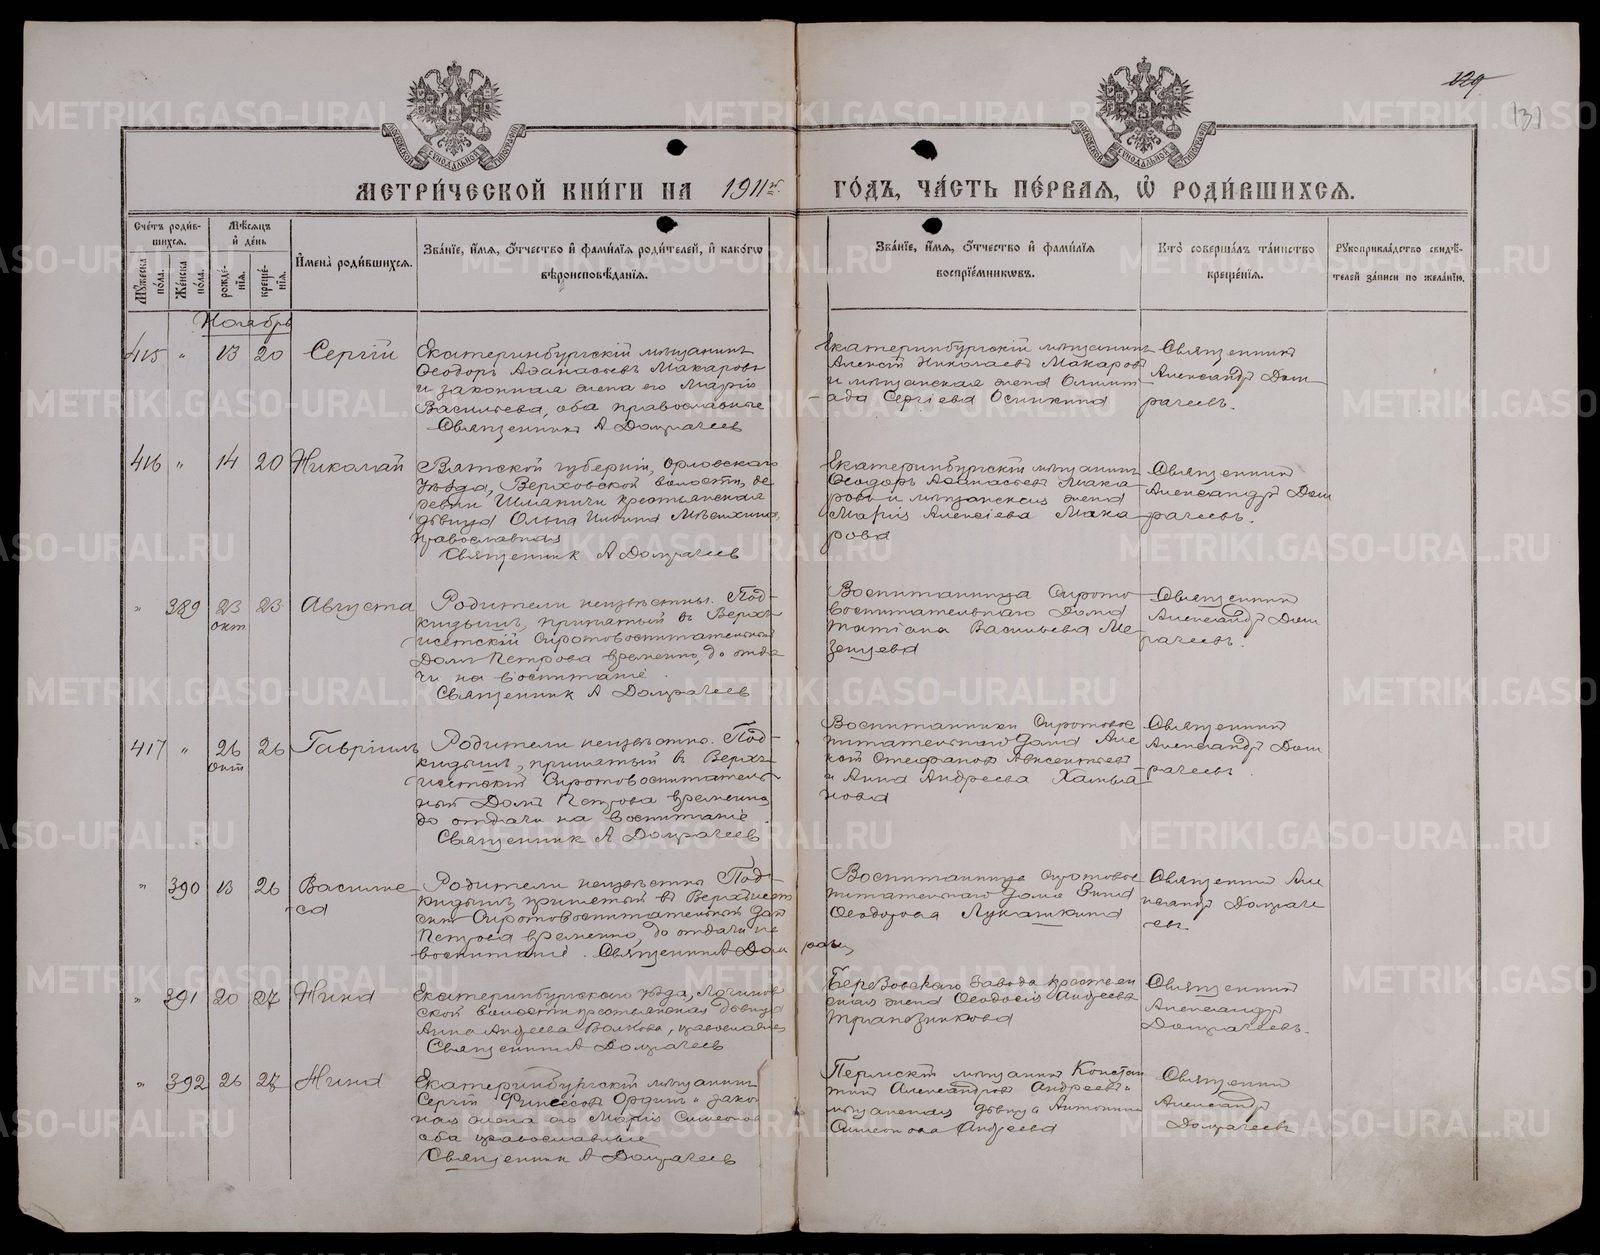 129
131
МОСКОВСКОЙ СѴНОДАЛЬНОЙ ТИПОГРАФІИ
МОСКОВСКОЙ СѴНОДАЛЬНОЙ ТИПОГРАФІИ
МЕТРИ́ЧЕСКОЙ КНИ́ГИ НА 1911 г. ГО́ДЪ, ЧА́СТЬ ПЕ́РВАЯ, Ѡ҆ РОДИ́ВШИХСЯ.
Сче́тъ роди́в-
шихся.
Мѣ́сяцъ
и҆ де́нь
Мꙋ́жеска по́ла.
Же́нска по́ла.
рожде́-
нїя.
креще́-
нїя.
И҆мена̀ роди́вшихся.
Зва́нїе, и҆́мя, ѻ҆́тчество и҆ фами́лїя роди́телей, и҆ како́гѡ
вѣроисповѣ́данїя.
Зва́нїе, и҆́мя, ѻ҆́тчество и҆ фами́лїя
воспрїе́мникѡвъ.
Кто̀ соверша́лъ та́инство
креще́нїя.
Рꙋкоприкла́дство свидѣ́-
телей за́писи по жела́нїю.
Ноябрь
415 " 13 20 Сергій
Екатеринбургскій мѣщанинъ
Ѳеодоръ Аѳанасьевъ Макаровъ
и законная жена его Марія
Васильева, оба православные
Священникъ А Домрачеев
Екатеринбургскій мѣщанинъ
Алексій Николаевъ Макаровъ
и мѣщанская жена Олимпі-
ада Сергіева Осинкина
Священникъ
Александръ Дом
рачеевъ.
416 " 14 20 Николай
Вятской губерніи, Орловскаго
уѣзда, Верховской волости, де
ревни крестьянская
дѣвица Ольга
православная
Священник А Домрачеев
Екатеринбургскій мѣщанинъ
Ѳеодоръ Аѳанасьевъ Мака
ровъ и мѣщанская жена
Марія Алексіева Мака
рова
Священникъ
Александръ Дом
рачеевъ.
" 389 23 окт 23 Августа
Родители неизвѣстны. Под-
кидышъ, принятый въ Верхъ-
исетскій Сиротовоспитательный
Домъ Петрова временно, до отда
чи на воспитаніе.
Священник А Домрачеев
Воспитанница Сирото
воспитательнаго Дома
Татіана Васильева Ме-
зенцева
Священникъ
Александръ Дом
рачеевъ.
417 " 26 окт 26 Гавріилъ
Родители неизвѣстны. Под-
кидышъ, принятый въ Верхъ-
исетскій Сиротовоспитатель-
ный Домъ Петрова временно,
до отдачи на воспитаніе.
Священник А Домрачеев
Воспитанники Сиротовос
питательнаго Дома Але
ксій Стефановъ Авксентьевъ
и Анна Андреева
нова
Священникъ
Александръ Дом
рачеевъ.
" 390 13 26 Василис
са
Родители неизвѣстны Под-
кидышъ принятый въ Верхъисет
скій Сиротовоспитательный Дом
Петрова временно, до отдачи на
воспитаніе. Священник А Дом рачеев
Воспитанница Сиротовос
питательнаго Дома Зина
Ѳеодорова Лукашкина
Священник Але
ксандръ Домраче
евъ.
" 391 20 27 Нина
Екатеринбургскаго уѣзда, Логинов
ской волости крестьянская дѣвица
Анна Андреева Волкова, православная
Священник А Домрачеев
Березовскаго завода крестьян
ская жена Ѳеодосія Андреева
Трапезникова
Священникъ
Александръ
Домрачеевъ.
" 392 26 27 Нина
Екатеринбургскій мѣщанинъ
Сергій и закон
ная жена его Марія Симеонова
оба православные
Священник А Домрачеев
Пермскій мѣщанинъ Констан
тинъ Александровъ Андреевъ и
мѣщанская дѣвица Антонина
Симеонова Андреева
Священник
Александръ
Домрачеевъ
METRIKI.GASO-URAL.RU